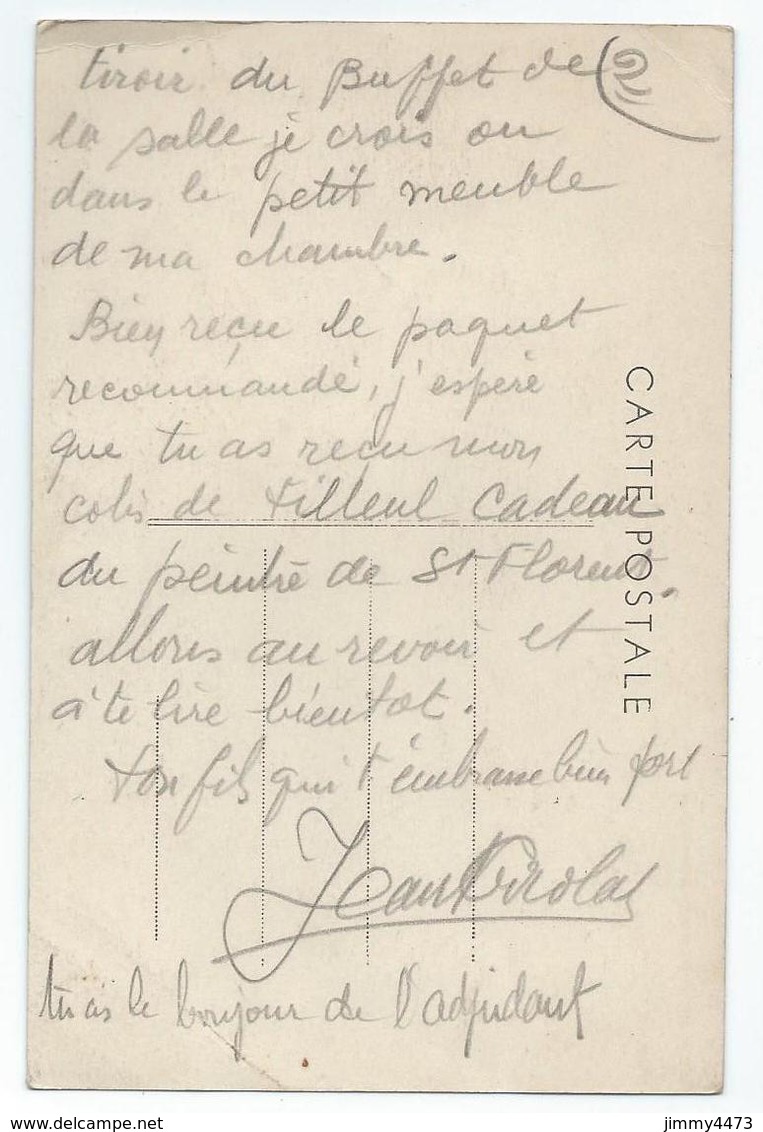 2
tiroir du Buffet de
la salle je crois ou
dans le petit meuble
de ma chambre.
Bien reçu le paquet
recommandé, j'espère
que tu as reçu mon
colis de tilleul cadeau
du peintre de St Florent.
allons au revoir et
à te lire bientot.
ton fils qui t'embrasse bien fort
Jean Nicolas
tu as le bonjour de l'adjudant
CARTE POSTALE
delcampe.net
jimmy4473